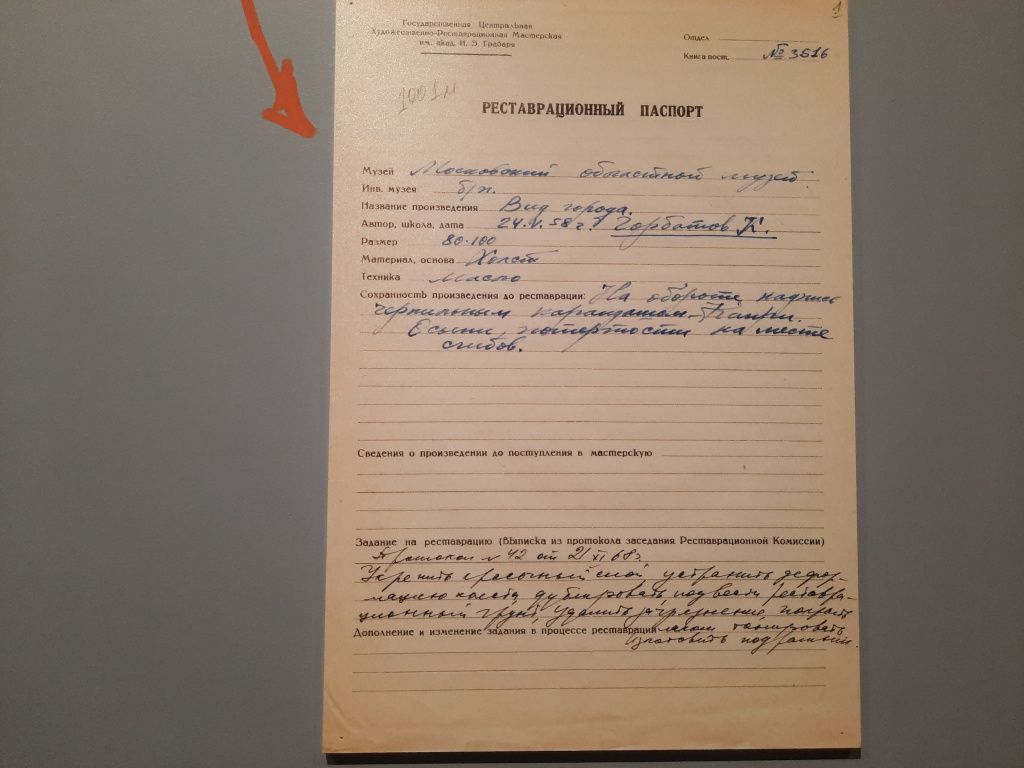 1
Государственная Центральная
Художественно-Реставрационная Мастерская
им. акад. И. Э. Грабаря
Отдел
Книга пост. № 3516
1001м
РЕСТАВРАЦИОННЫЙ ПАСПОРТ
Музей Московский областной музей
Инв. музея б/н.
Название произведения Вид города.
Автор, школа, дата 24.V.58 г. Горбатов К.
Размер 80·100
Материал, основа Холст
Техника Масло
Сохранность произведения до реставрации: На обороте надпись
чернильным карандашом
Осыпи, потертости на месте
сгибов.
Сведения о произведении до поступления в мастерскую
Задание на реставрацию (Выписка из протокола заседания Реставрационной Комиссии)
Протокол № 42 от 21 XI 68г.
Укрепить красочный слой устранить дефор-
мацию холста дублировать, подвести реставра-
ционный грунт, удалить загрязнение, покрыть
Дополнение и изменение задания в процессе реставрации лаком тонировать
изготовить подрамник.